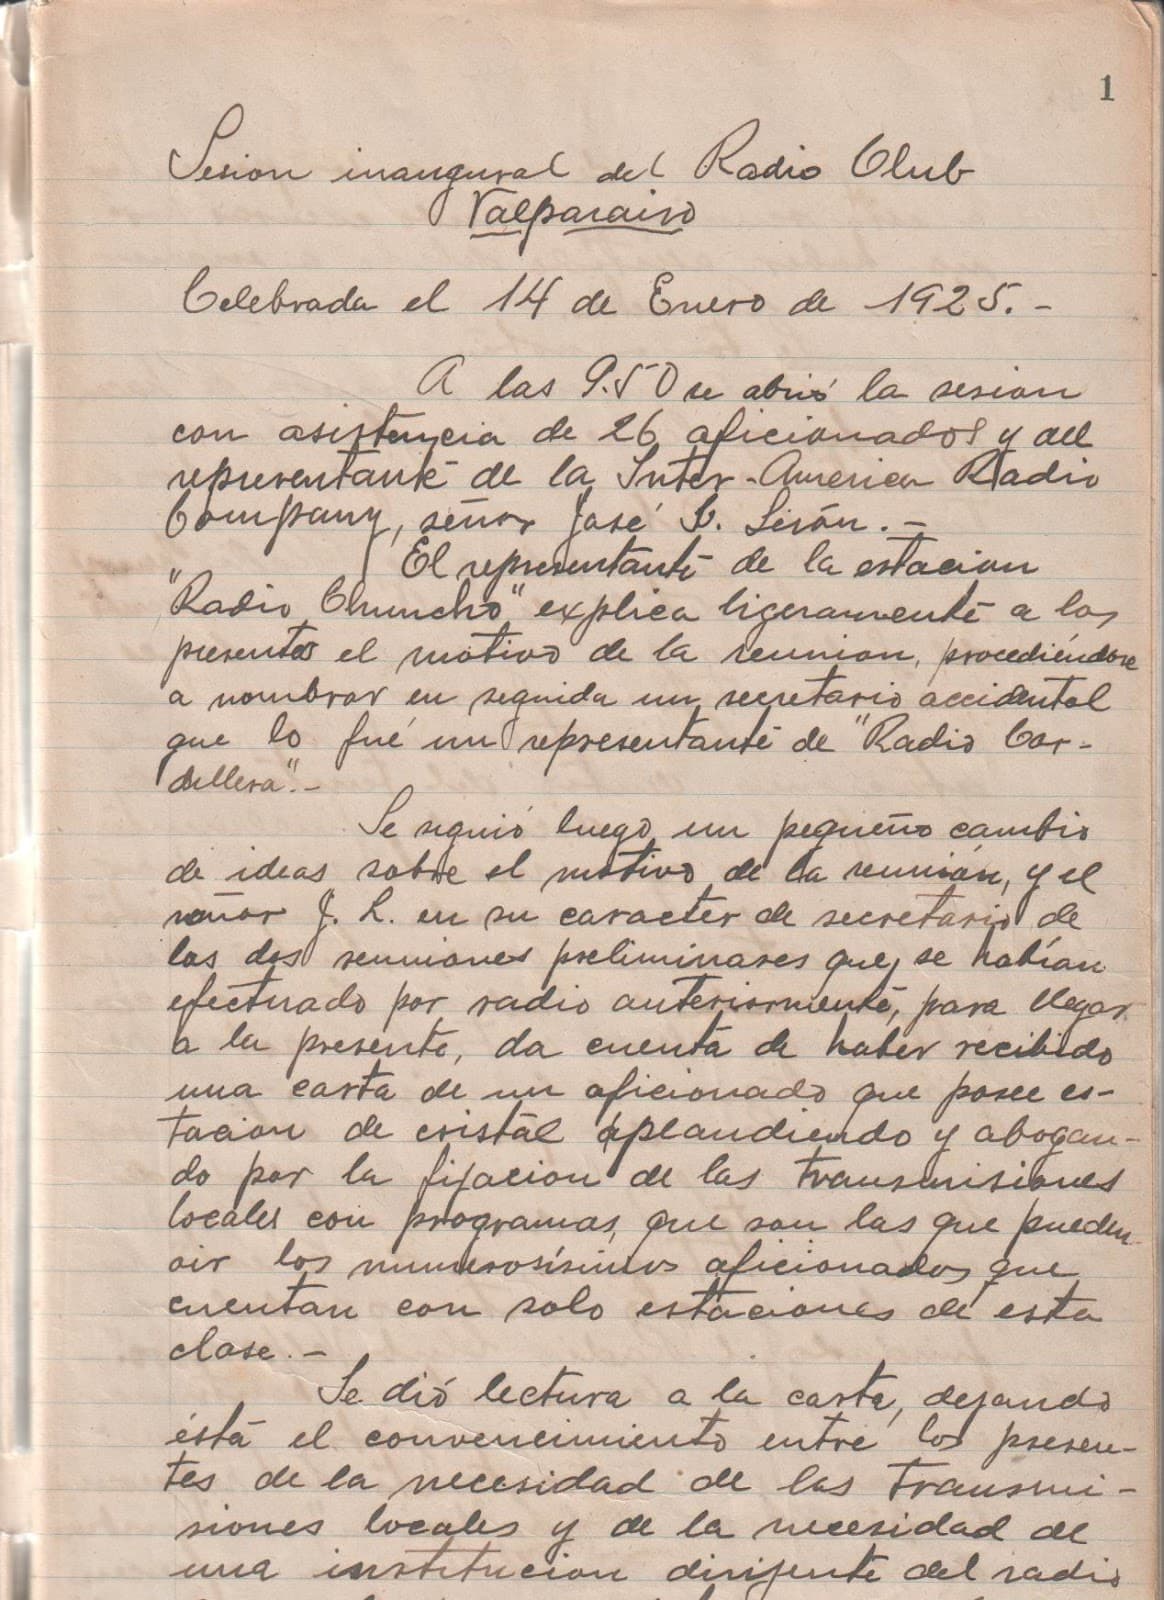 1
Sesion inaugural del Radio Club
Valparaiso
Celebrada el 14 de Enero de 1925.-
A las 9.50 se abrió la sesion
con asistencia de 26 aficionados y del
representante de la Inter-America Radio
Company, señor José
El representante de la estacion
"Radio Chuncho" explica ligeramente a los
presentes el motivo de la reunion, procediéndose
a nombrar en seguida un secretario accidental
que lo fué un representante de "Radio Cor-
dillera".-
Se siguió luego un pequeño cambio
de ideas sobre el motivo de la reunión, y el
señor J. L. en su caracter de secretario de
las dos reuniones preliminares que se habían
efectuado por radio anteriormente, para llegar
a la presente, da cuenta de haber recibido
una carta de un aficionado que posee es-
tacion de cristal aplaudiendo y abogan-
do por la fijacion de las transmisiones
locales con programas, que son las que pueden
oir los numerosísimos aficionados que
cuentan con solo estaciones de esta
clase.-
Se dió lectura a la carta, dejando
ésta el convencimiento entre los presen-
tes de la necesidad de las transmi-
siones locales y de la necesidad de
una institucion dirijente del radio